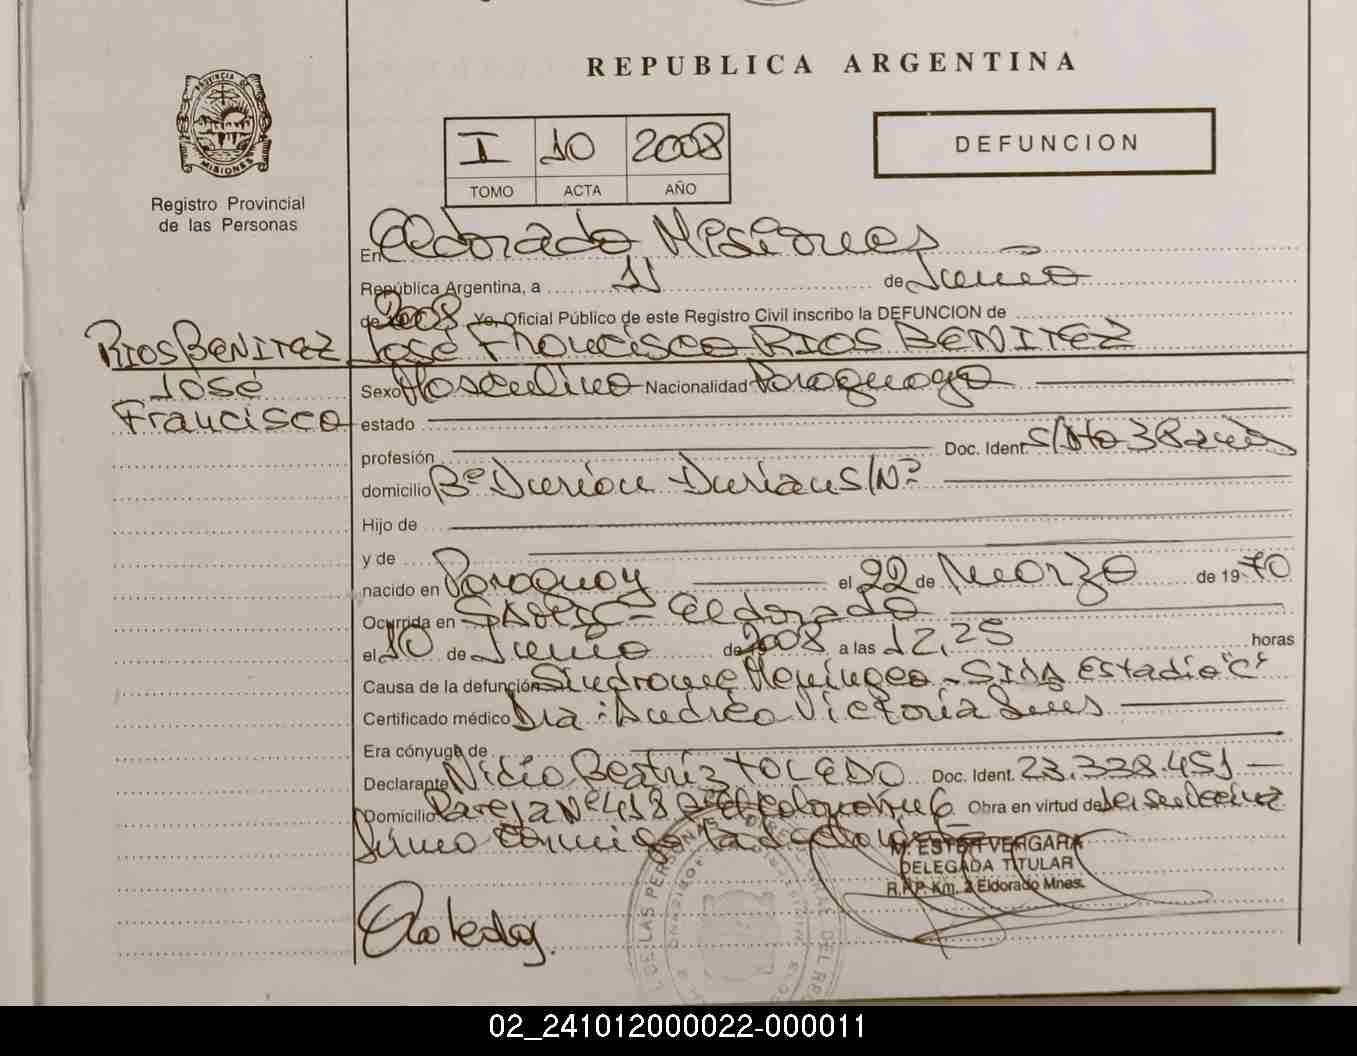 REPUBLICA ARGENTINA
PROVINCIA DE
MISIONES
Registro Provincial
de las Personas
I 10 2008
TOMO ACTA AÑO
DEFUNCION
En Eldorado Misiones
República Argentina, a 11 de Junio
de 2008 Yo, Oficial Público de este Registro Civil inscribo la DEFUNCION de
RIOS BENITEZ José Francisco RIOS BENITEZ
José
Francisco
Sexo Masculino Nacionalidad Paraguaya
estado
profesión Doc. Ident. 38 años
domicilio Bº S/Nº
Hijo de
y de
nacido en Paraguay el 22 de Marzo de 1970
Ocurrida en Eldorado
el 10 de Junio de 2008 a las 12,25 horas
Causa de la defunción Sindrome Meningeo - SIDA Estadio "C"
Certificado médico Dra: Andrea Victoria
Era cónyuge de
Declarante Nidia Beatriz TOLEDO Doc. Ident. 23.338.451
Domicilio Pareja Nº 418 Obra en virtud de
firma
M. ESTER VERGARA
DELEGADA TITULAR
R.P.P. Km. 2 Eldorado Mnes.
02_241012000022-000011